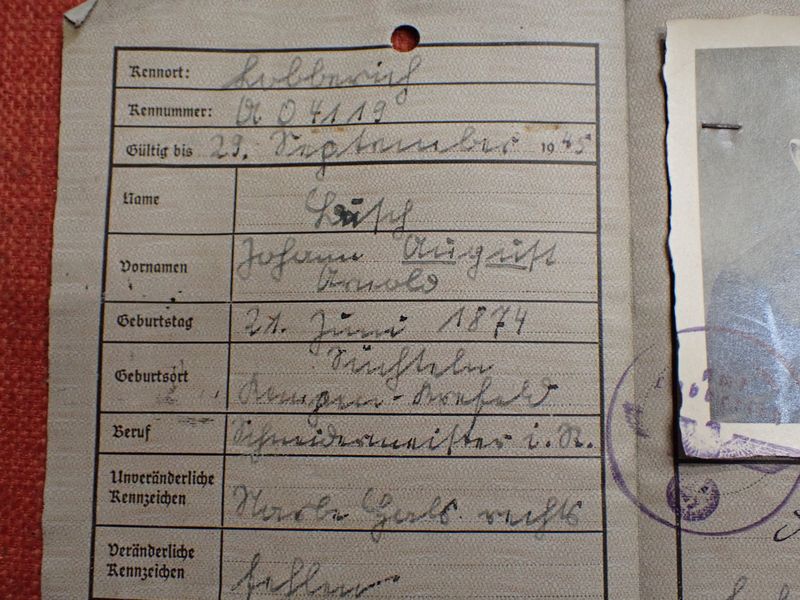 Kennort: Lobberich
Kennummer: A 04119
Gültig bis 29. September 1945
Name
Busch
Vornamen Johann August
Arnold
Geburtstag 21. Juni 1874
Süchteln
Geburtsort
Kempen-Krefeld
Beruf Schneidermeister i. R.
Unveränderliche
Kennzeichen Narbe Hals rechts
Veränderliche
Kennzeichen fehlen